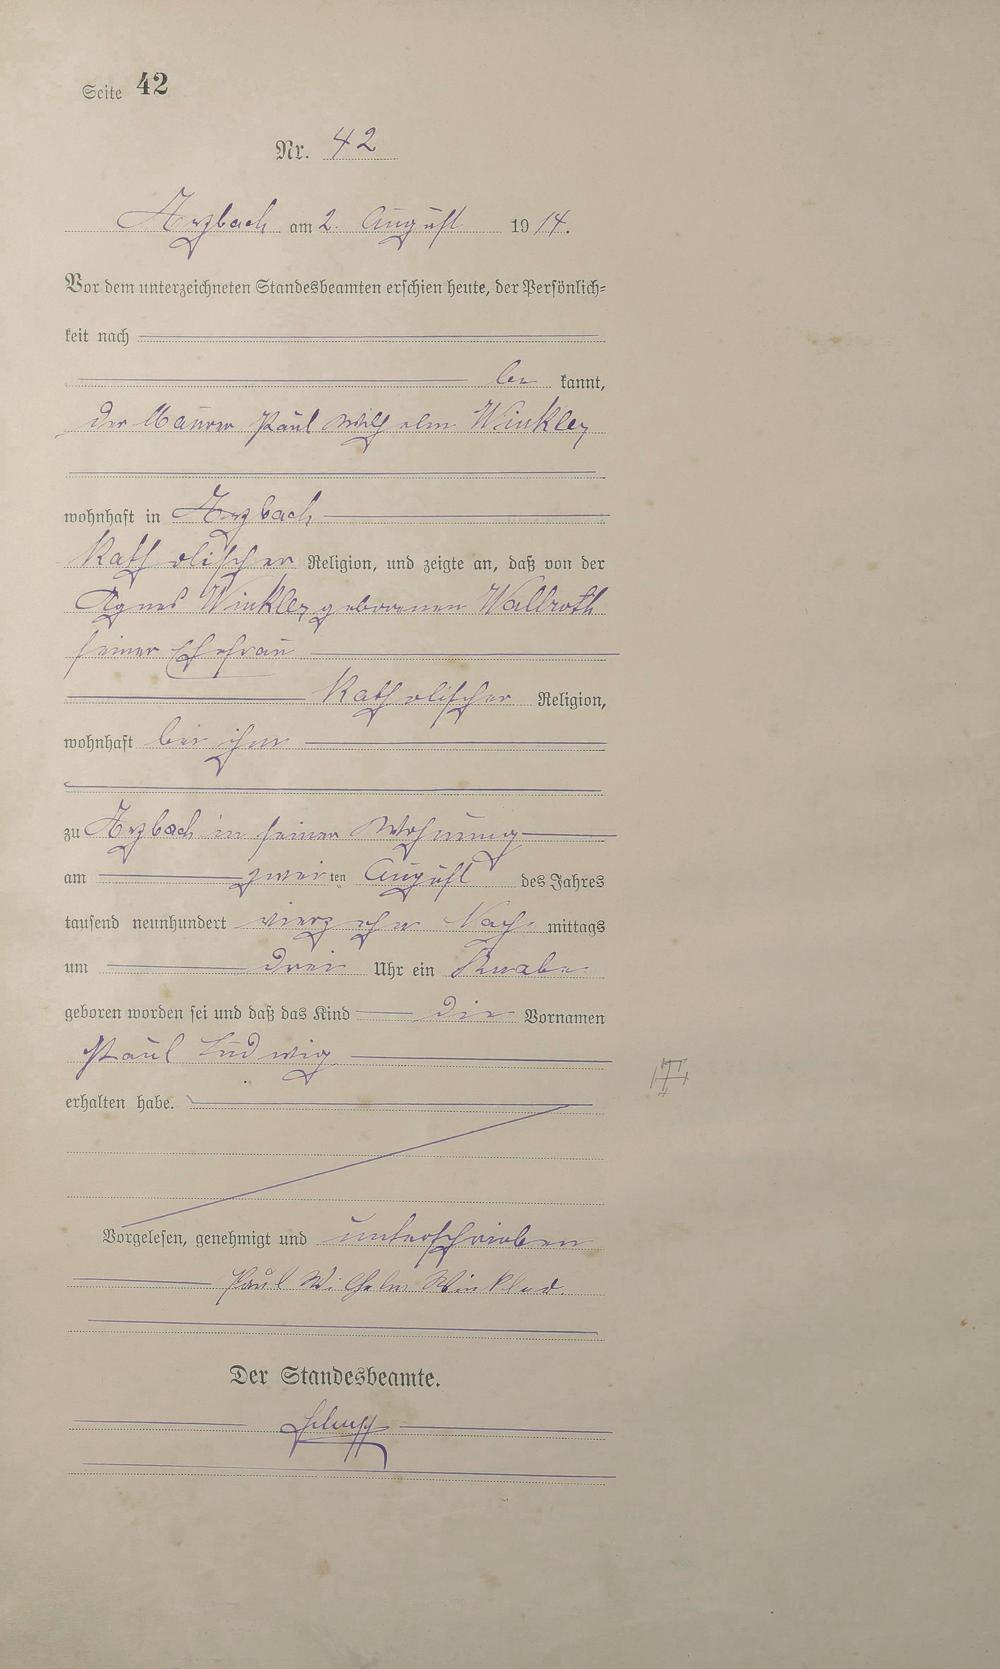 Seite 42
Nr. 42
Arzbach am 2. August 1914.
Vor dem unterzeichneten Standesbeamten erschien heute, der Persönlich-
keit nach
be kannt,
der Maurer Paul Wilhelm Winkler
wohnhaft in Arzbach
katholischer Religion, und zeigte an, daß von der
Agnes Winkler geborenen Wallroth
seiner Ehefrau
katholischer Religion,
wohnhaft bei ihm
zu Arzbach in seiner Wohnung
am zweiten August des Jahres
tausend neunhundert vierzehn Nach- mittags
um drei Uhr ein Knabe
geboren worden sei und daß das Kind die Vornamen
Paul Ludwig
erhalten habe.
Vorgelesen, genehmigt und unterschrieben
Paul Wilhelm Winkler.
Der Standesbeamte.